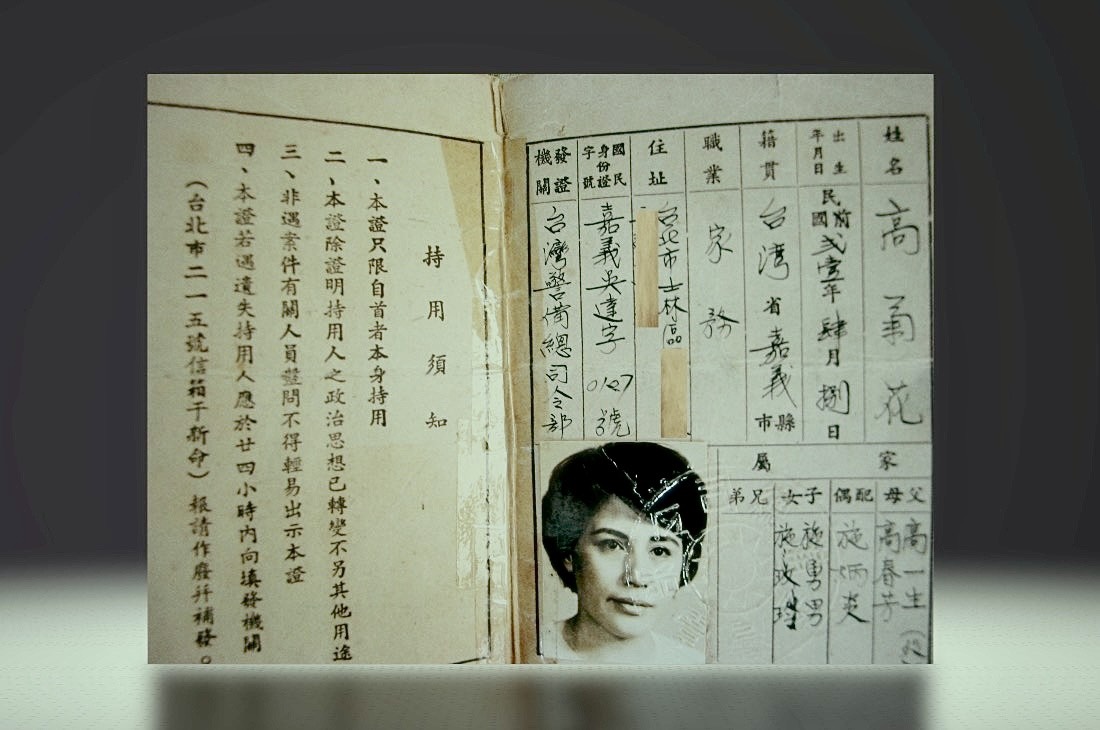 姓名 高菊花
出生年月日 民國前弍壹年肆月捌日
籍貫 台湾省嘉義縣市
職業 家務
住址 台北市士林區
國民身份證字號 嘉義吳達字0127號
發證機關 台灣警備總司令部
家屬
父母 高一生 高春芳
配偶 施炳炎
子女 施勇男 施政
兄弟
持用須知
一、本證只限自首者本身持用
二、本證除證明持用人之政治思想已轉變不另其他用途
三、非遇案件有關人員盤問不得輕易出示本證
四、本證若遇遺失持用人應於廿四小時內向填發機關
(台北市二一五號信箱于新命)報請作廢并補發。